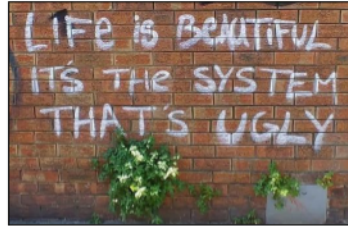 LIFe is BEAUTIFUL
IT'S THe SYSTEM
THAT'S UGLY